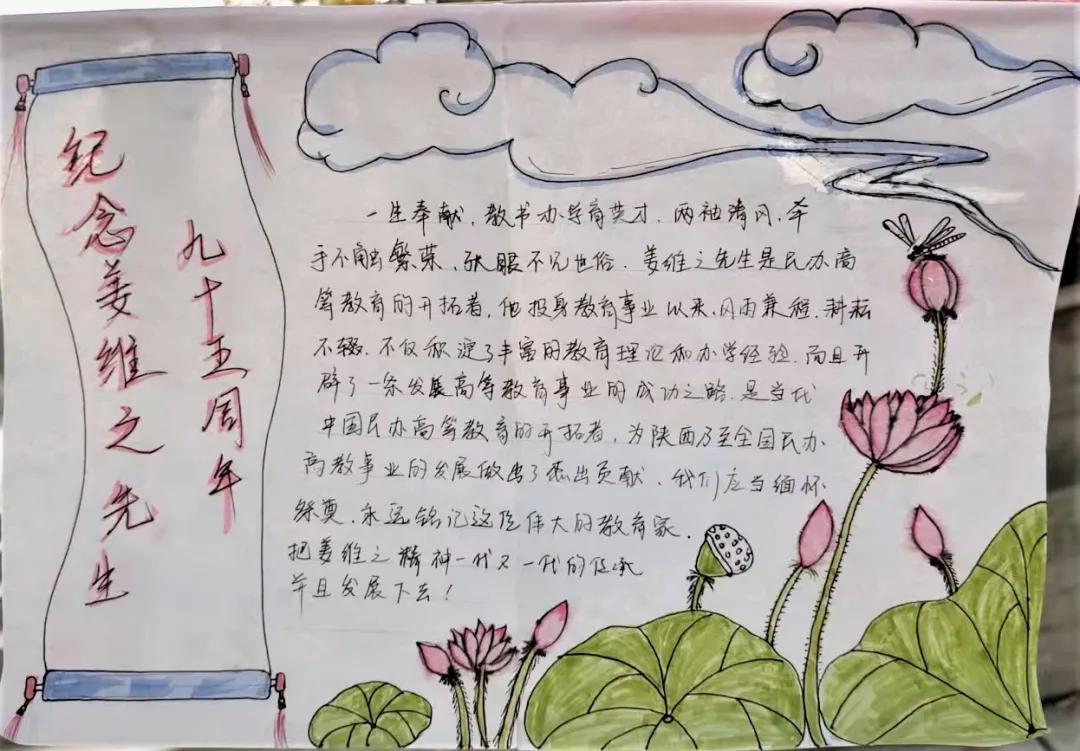 纪念姜维之先生
九十五周年
一生奉献，教书办学育英才，两袖清风，牵
手不触繁荣，张眼不见世俗．姜维之先生是民办高
等教育的开拓者，他投身教育事业以来，风雨兼程，耕耘
不辍，不仅积淀了丰富的教育理论和办学经验，而且开
辟了一条发展高等教育事业的成功之路．是当代
中国民办高等教育的开拓者，为陕西乃至全国民办
高教事业的发展做出了杰出贡献，我们应当缅怀
祭奠，永远铭记这位伟大的教育家．
把姜维之精神一代又一代的传承
并且发展下去！